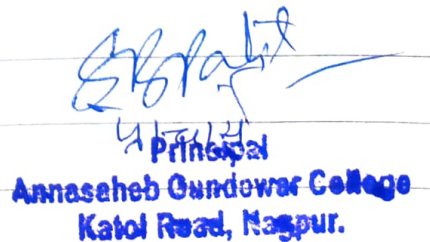 प्राचार्य
Principal
Annasaheb Gundewar College
Katol Road, Nagpur.